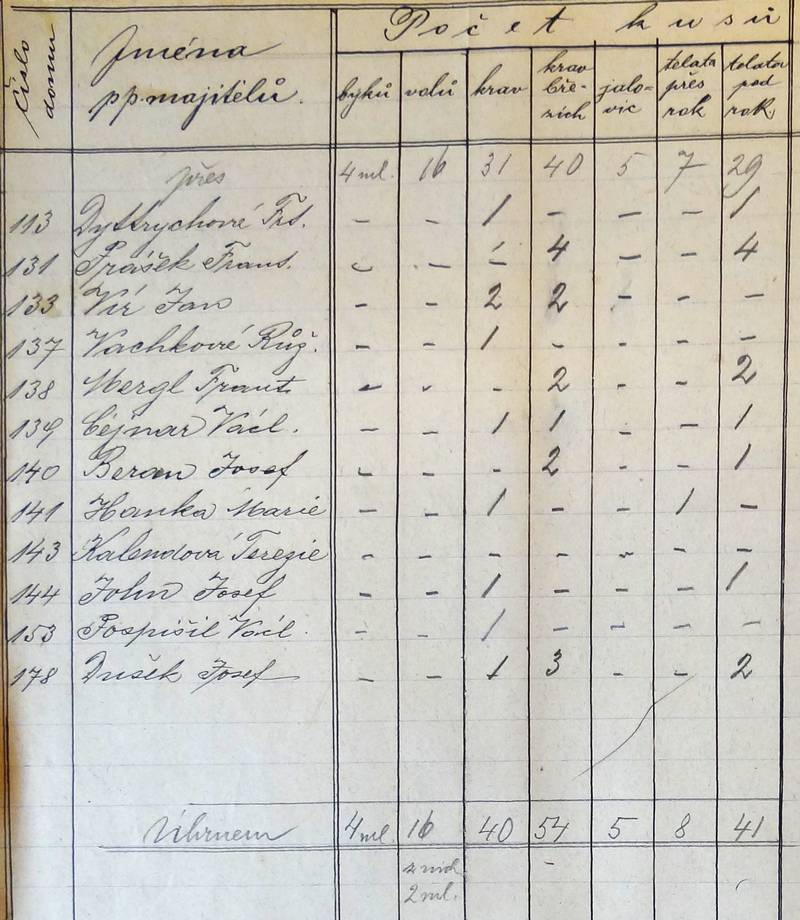 Číslo domu | Jména pp. majitelů. | Počet kusů
býků | volů | krav | krav březích | jalovic | telata přes rok | telata pod rok
přes | 4 ml. | 16 | 31 | 40 | 5 | 7 | 29
113 | Dyttrychové Frt. | – | – | 1 | – | – | – | 1
131 | Prášek Frant. | – | – | – | 4 | – | – | 4
133 | Vír Jan | – | – | 2 | 2 | – | – | –
137 | Vachkové Růž. | – | – | 1 | – | – | – | –
138 | Mergl Frant. | – | – | – | 2 | – | – | 2
139 | Cejnar Václ. | – | – | 1 | 1 | – | – | 1
140 | Beran Josef | – | – | – | 2 | – | – | 1
141 | Hanka Marie | – | – | 1 | – | – | 1 | –
143 | Kalendová Terezie | – | – | – | – | – | – | –
144 | John Josef | – | – | 1 | – | – | – | 1
153 | Pospíšil Václ. | – | – | 1 | – | – | – | –
178 | Dušek Josef | – | – | 1 | 3 | – | – | 2
Úhrnem | 4 ml. | 16 | 40 | 54 | 5 | 8 | 41
z nich
2 ml.